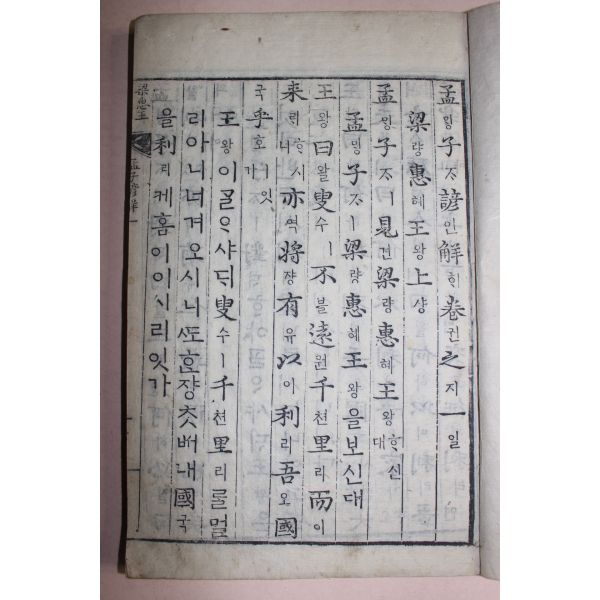 孟ᄆᆡᆼ子ᄌᆞ諺언解ᄒᆡ卷권之지一일
梁량惠혜王왕上샹
孟ᄆᆡᆼ子ᄌᆞㅣ見견梁량惠혜王왕ᄒᆞ신대
孟ᄆᆡᆼ子ᄌᆞㅣ梁량惠혜王왕을보신대
王왕曰왈叟수ㅣ不블遠원千쳔里리而이
来ᄅᆡᄒᆞ시니亦역將쟝有유以이利리吾오國
국乎호ㅣ잇가
王왕이ᄀᆞᆯᄋᆞ샤ᄃᆡ叟수ㅣ千쳔里리ᄅᆞᆯ멀
리아니녀겨오시니ᄯᅩᄒᆞᆫ쟝ᄎᆞᆺᄡᅥ내國국
을利리케홈이이시리잇가
梁惠王
孟子諺解 一